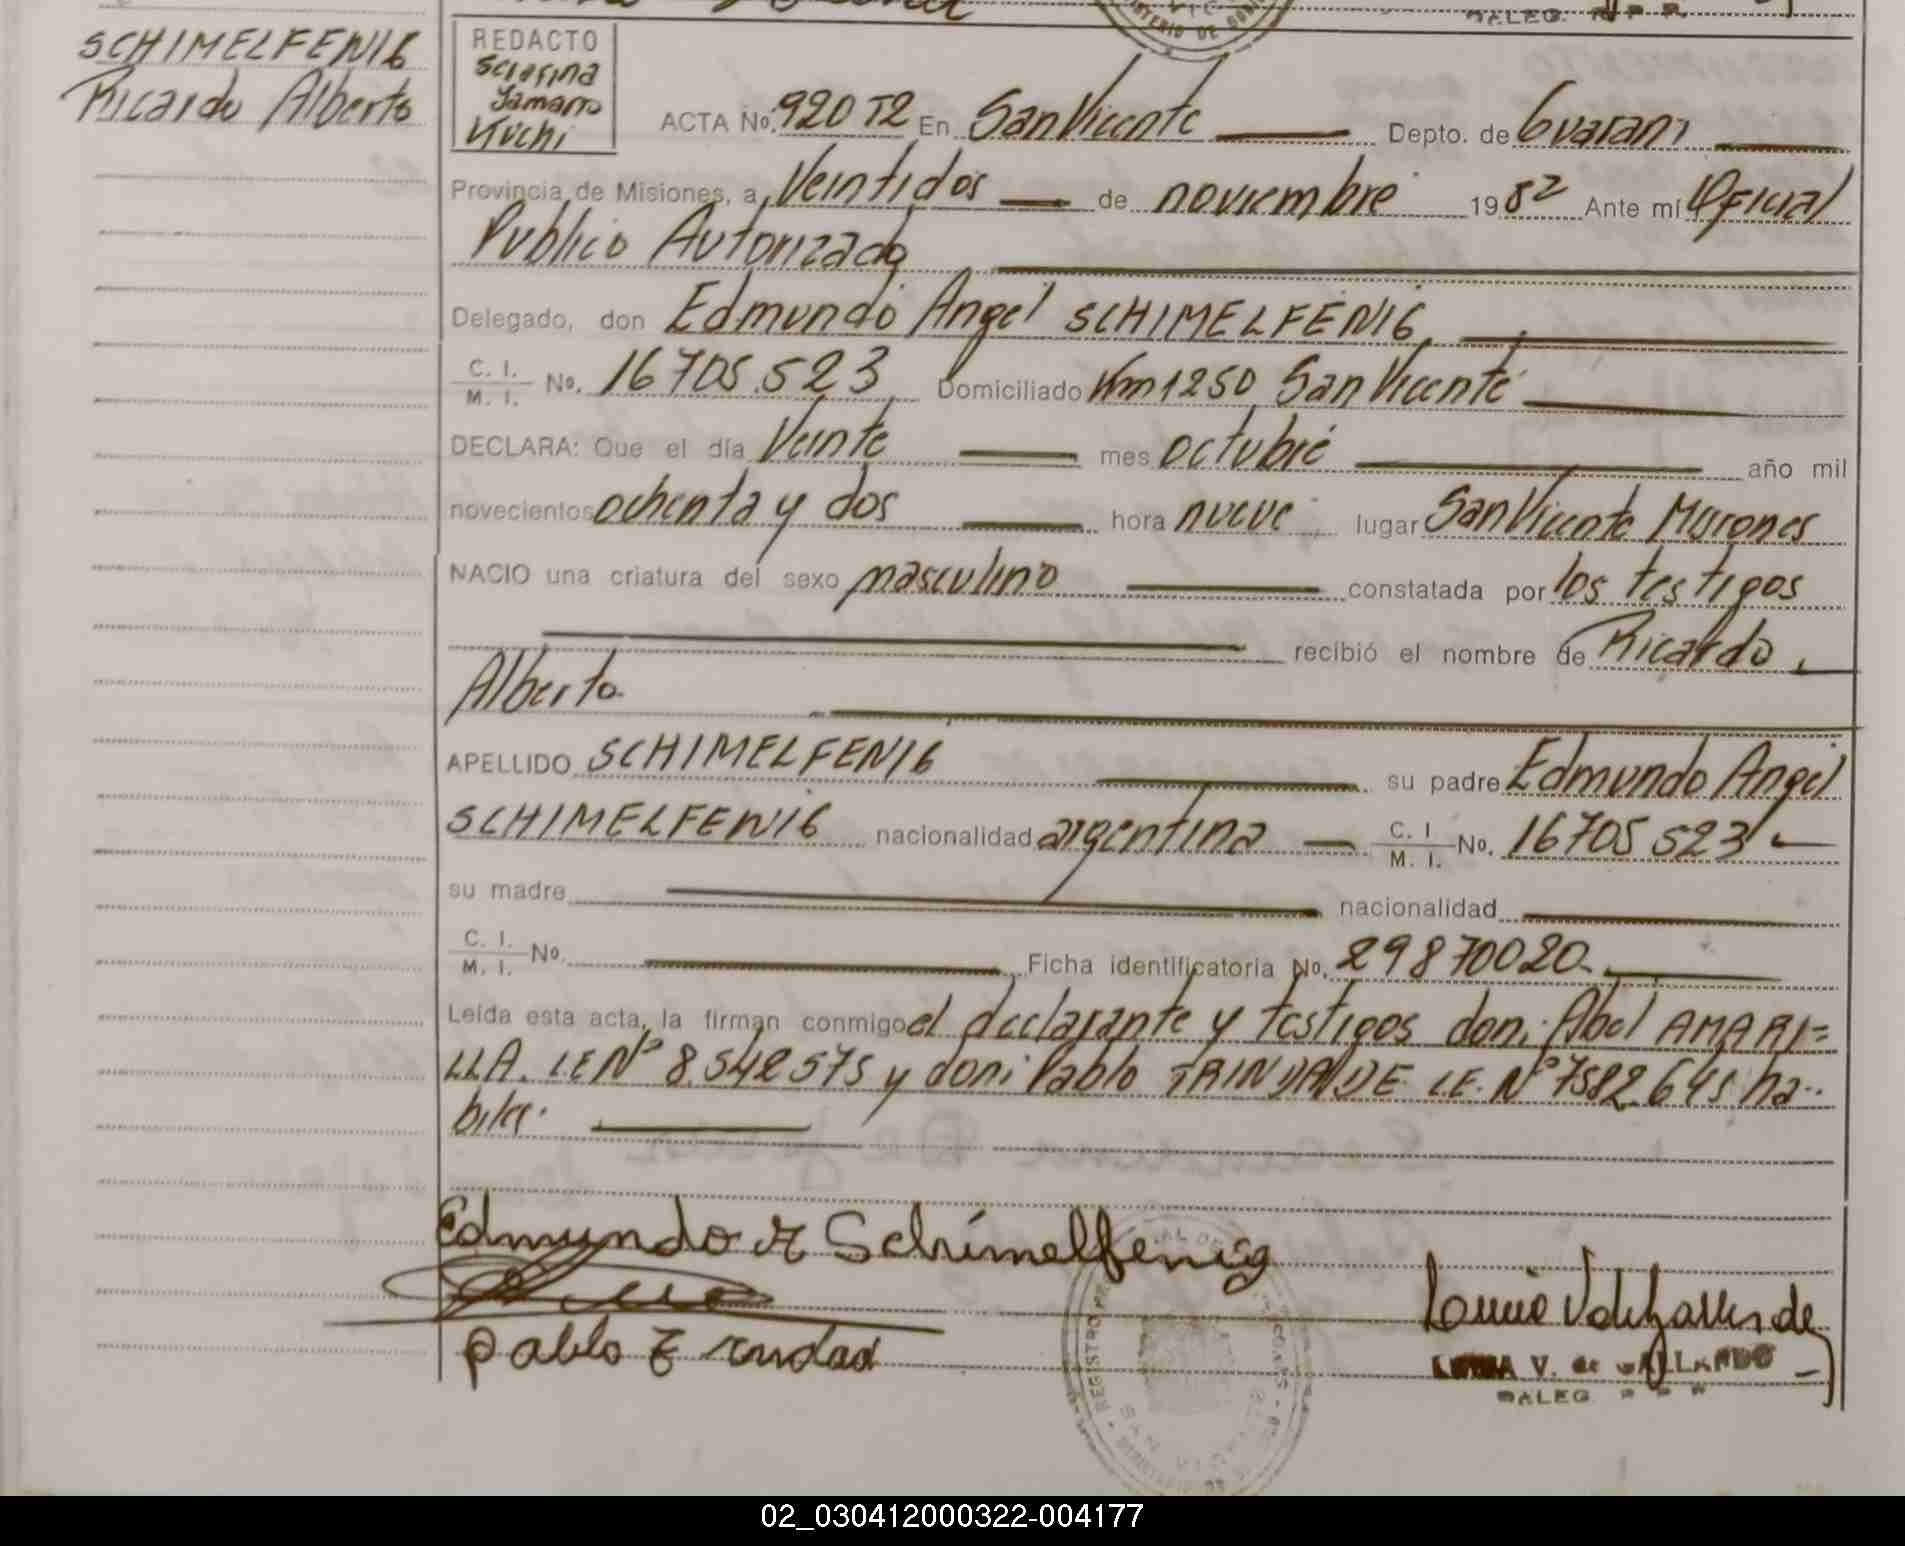 SCHIMELFENIG
Ricardo Alberto
REDACTO
Serafina
Yamarro
Kuchi
ACTA No. 920 T2 En San Vicente Depto. de Guarani
Provincia de Misiones, a Veintidos de noviembre 1982 Ante mi Oficial
Publico Autorizado
Delegado, don Edmundo Angel SCHIMELFENIG
C. I. M. I. No. 16705.523 Domiciliado Km 1250 San Vicente
DECLARA: Que el día Veinte mes octubre año mil
novecientos ochenta y dos hora nueve lugar San Vicente Misiones
NACIO una criatura del sexo masculino constatada por los testigos
recibió el nombre de Ricardo
Alberto
APELLIDO SCHIMELFENIG su padre Edmundo Angel
SCHIMELFENIG nacionalidad argentina C. I M. I. No. 16705523
su madre nacionalidad
C. I. M. I. No. Ficha identificatoria No. 29870020
Leída esta acta, la firman conmigo el declarante y testigos don: Abel AMARI=
LLA. LE Nº 8.542575 y don: Pablo TRINDADE LE. Nº 7582645 ha-
biles.
Edmundo A Schimelfenig
Pablo
V. de GALLARDO
DALEG
02_030412000322-004177